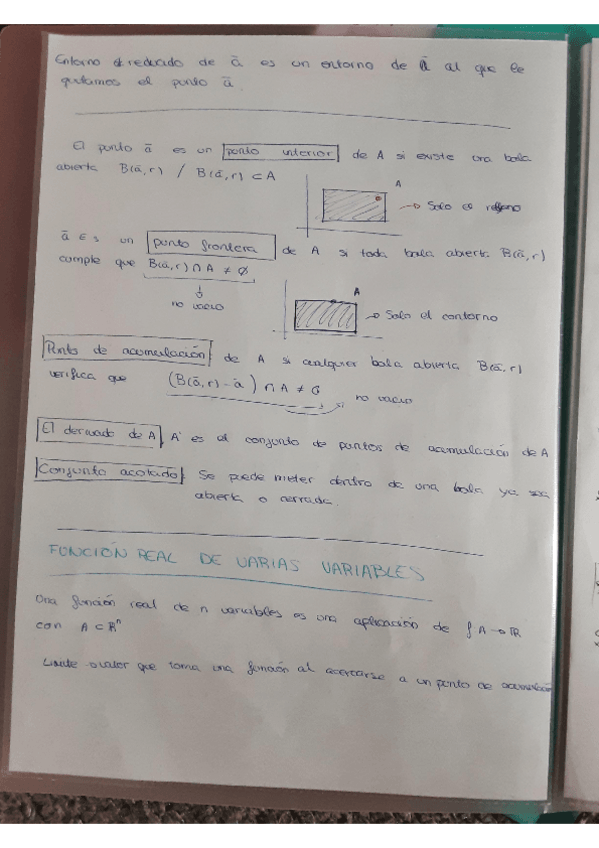 Entorno reducido de ā es un entorno de ā al que le
quitamos el punto ā.
El punto ā es un punto interior de A si existe una bola
abierta B(ā,r) / B(ā,r) ⊂ A
A
→ Solo el relleno
ā es un punto frontera de A si toda bola abierta B(ā,r)
cumple que B(ā,r) ∩ A ≠ ∅
no vacío
A
→ Solo el contorno
Punto de acumulación de A si cualquier bola abierta B(ā,r)
verifica que (B(ā,r) - ā) ∩ A ≠ ∅
no vacio
El derivado de A, A' es el conjunto de puntos de acumulación de A
Conjunto acotado. Se puede meter dentro de una bola ya sea
abierta o cerrada.
FUNCIÓN REAL DE VARIAS VARIABLES
Una función real de n variables es una aplicación de f A→ℝ
con A⊂ℝⁿ
Límite → valor que toma una función al acercarse a un punto de acumulación